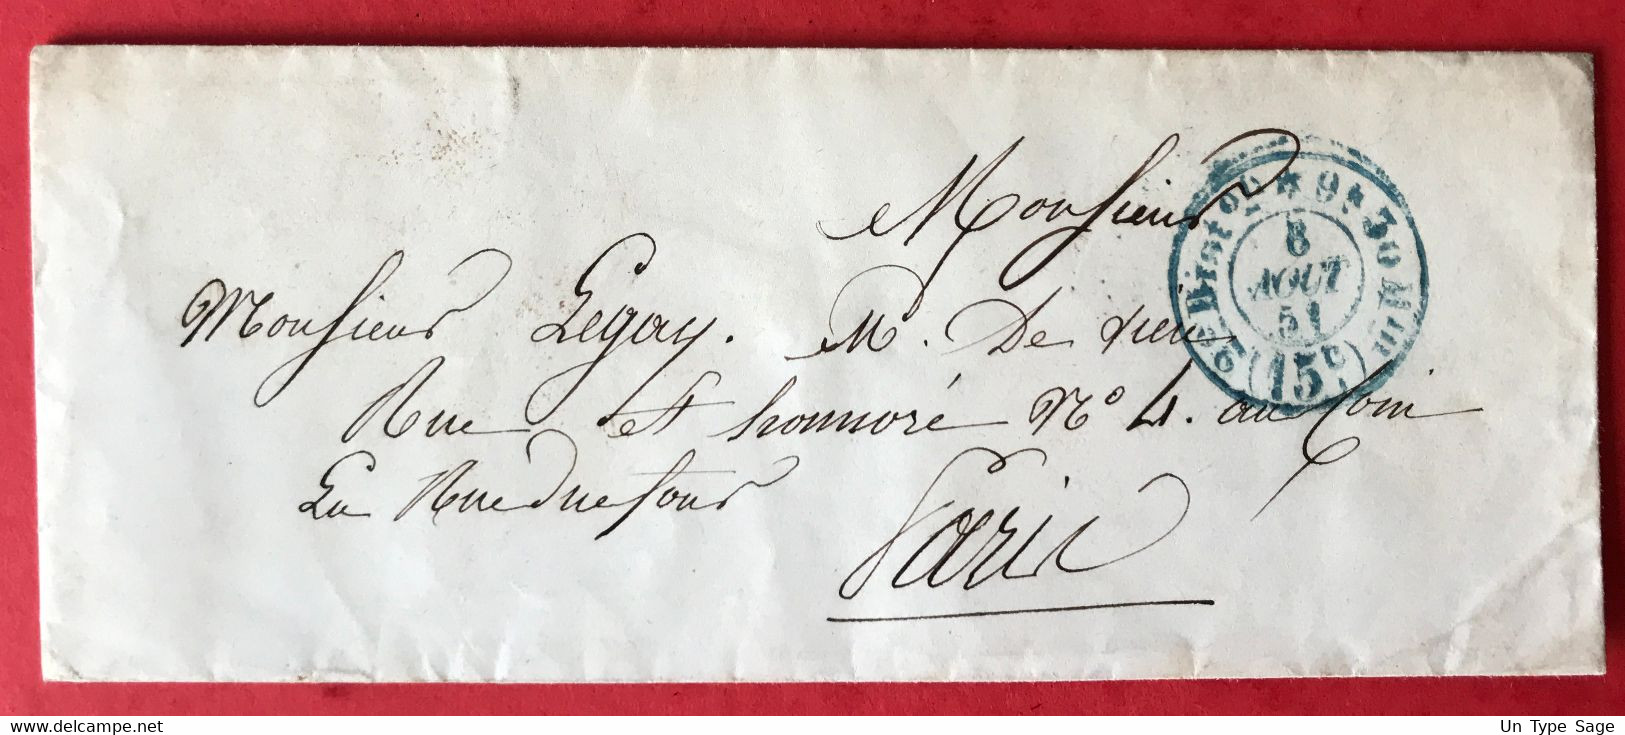 Monsieur
Monsieur Legay. Md. De vin
Rue St honnoré No 4. au Coin
La Rue du four
Paris
2e Diston * 9h. 30 Mn
8
AOUT
51
(15c)
www.delcampe.net
Un Type Sage